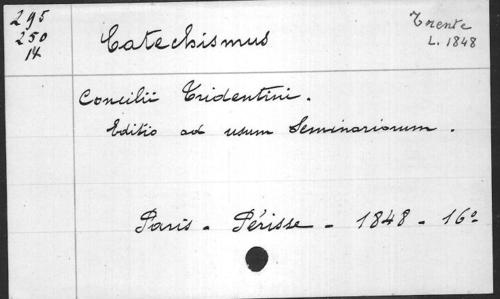 295
250
14
Catechismus
Trente
L. 1848
Concilii Tridentini.
Editio ad usum Seminariorum.
Paris - Périsse - 1848 - 16º